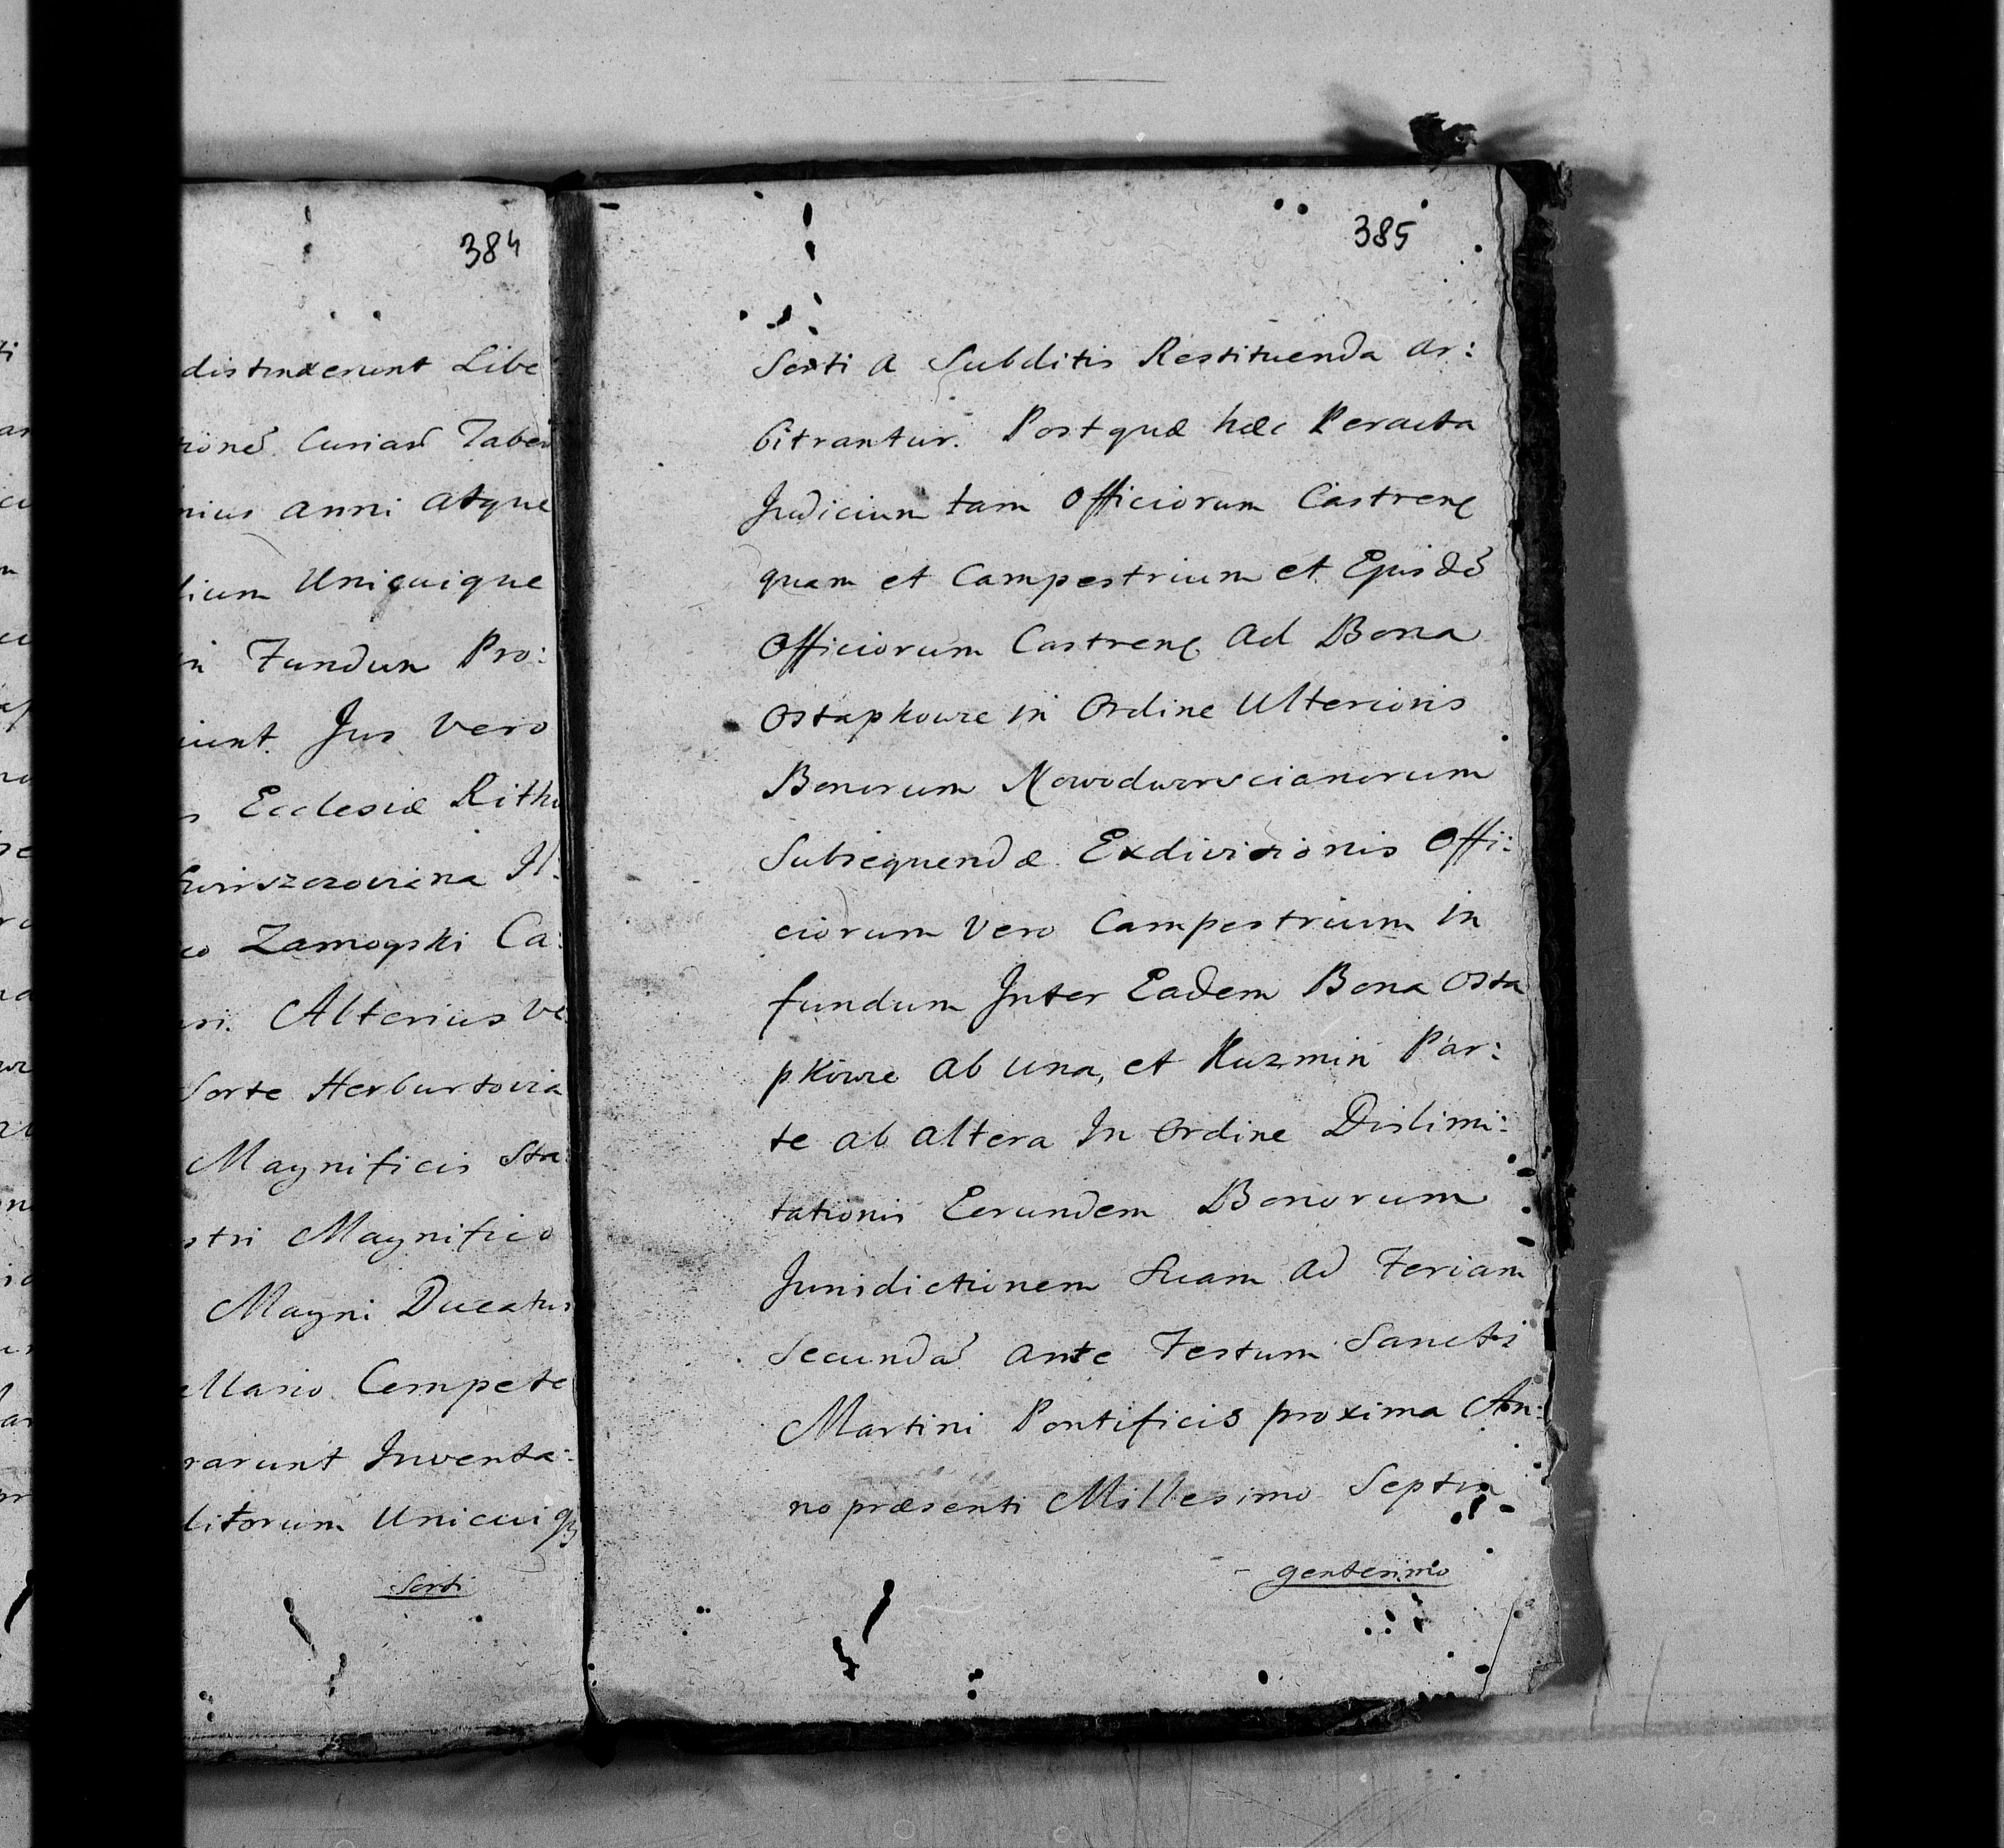 384
distinxerunt Libe
tionẽ Curiaȓ Taber
nius anni atque
lium Unicuique
in Fundun Pro:
iunt. Jus vero
s Ecclesiæ Rithu
Il:
co Zamoyski Ca:
ari. Alterius ve
Sorte Herburtovia
Magnificis Sta
stri Magnifico
Magni Ducatus
ellario Compete
rarunt Inventa:
ditorum Unicuiqꝫ
Sorti
385
Sorti a Subditis Restituenda ar:
bitrantur. Postquæ hæc Peracta
Judicium tam Officiorum Castrenę
quam et Campestrium et Ejusdẽ
Officiorum Castrenę ad Bona
Ostapkowce in Ordine Ulterioris
Bonorum Nowodworscianorum
Subsequendæ Exdivisionis Offi:
ciorum Vero Campestrium in
fundum Inter Eadem Bona Osta
pkowce ab una, et Kuzmin Par:
te ab altera In Ordine Dislimi:
tationis Eorundem Bonorum
Jurisdictionem Suam ad Feriam
Secundã ante Festum Sancti
Martini Pontificis proxima An:
no præsenti Millesimo Septin
gentesimo